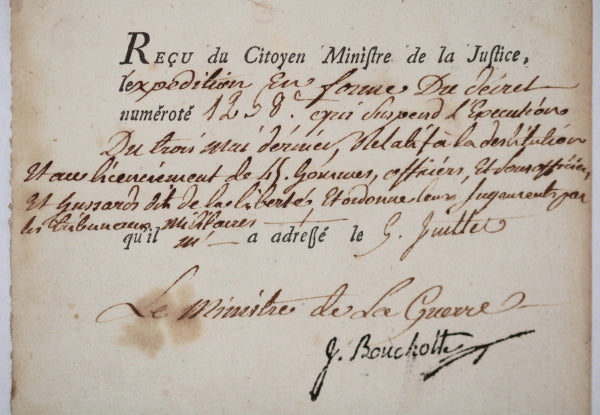 REÇU du Citoyen Ministre de la Justice,
l'expédition En forme Du décret
numéroté 1238. qui Suspend l'Execution
Du trois mai dernier, Relatif à la destitution
Et au licenciement de 45. hommes, officiers, Et sous officiers,
Et hussards dit de la liberté, Et ordonne leurs jugements par
les tribunaux militaires
qu'il m' a adressé le 5. Juillet
Le Ministre de La Guerre
J. Bouchotte